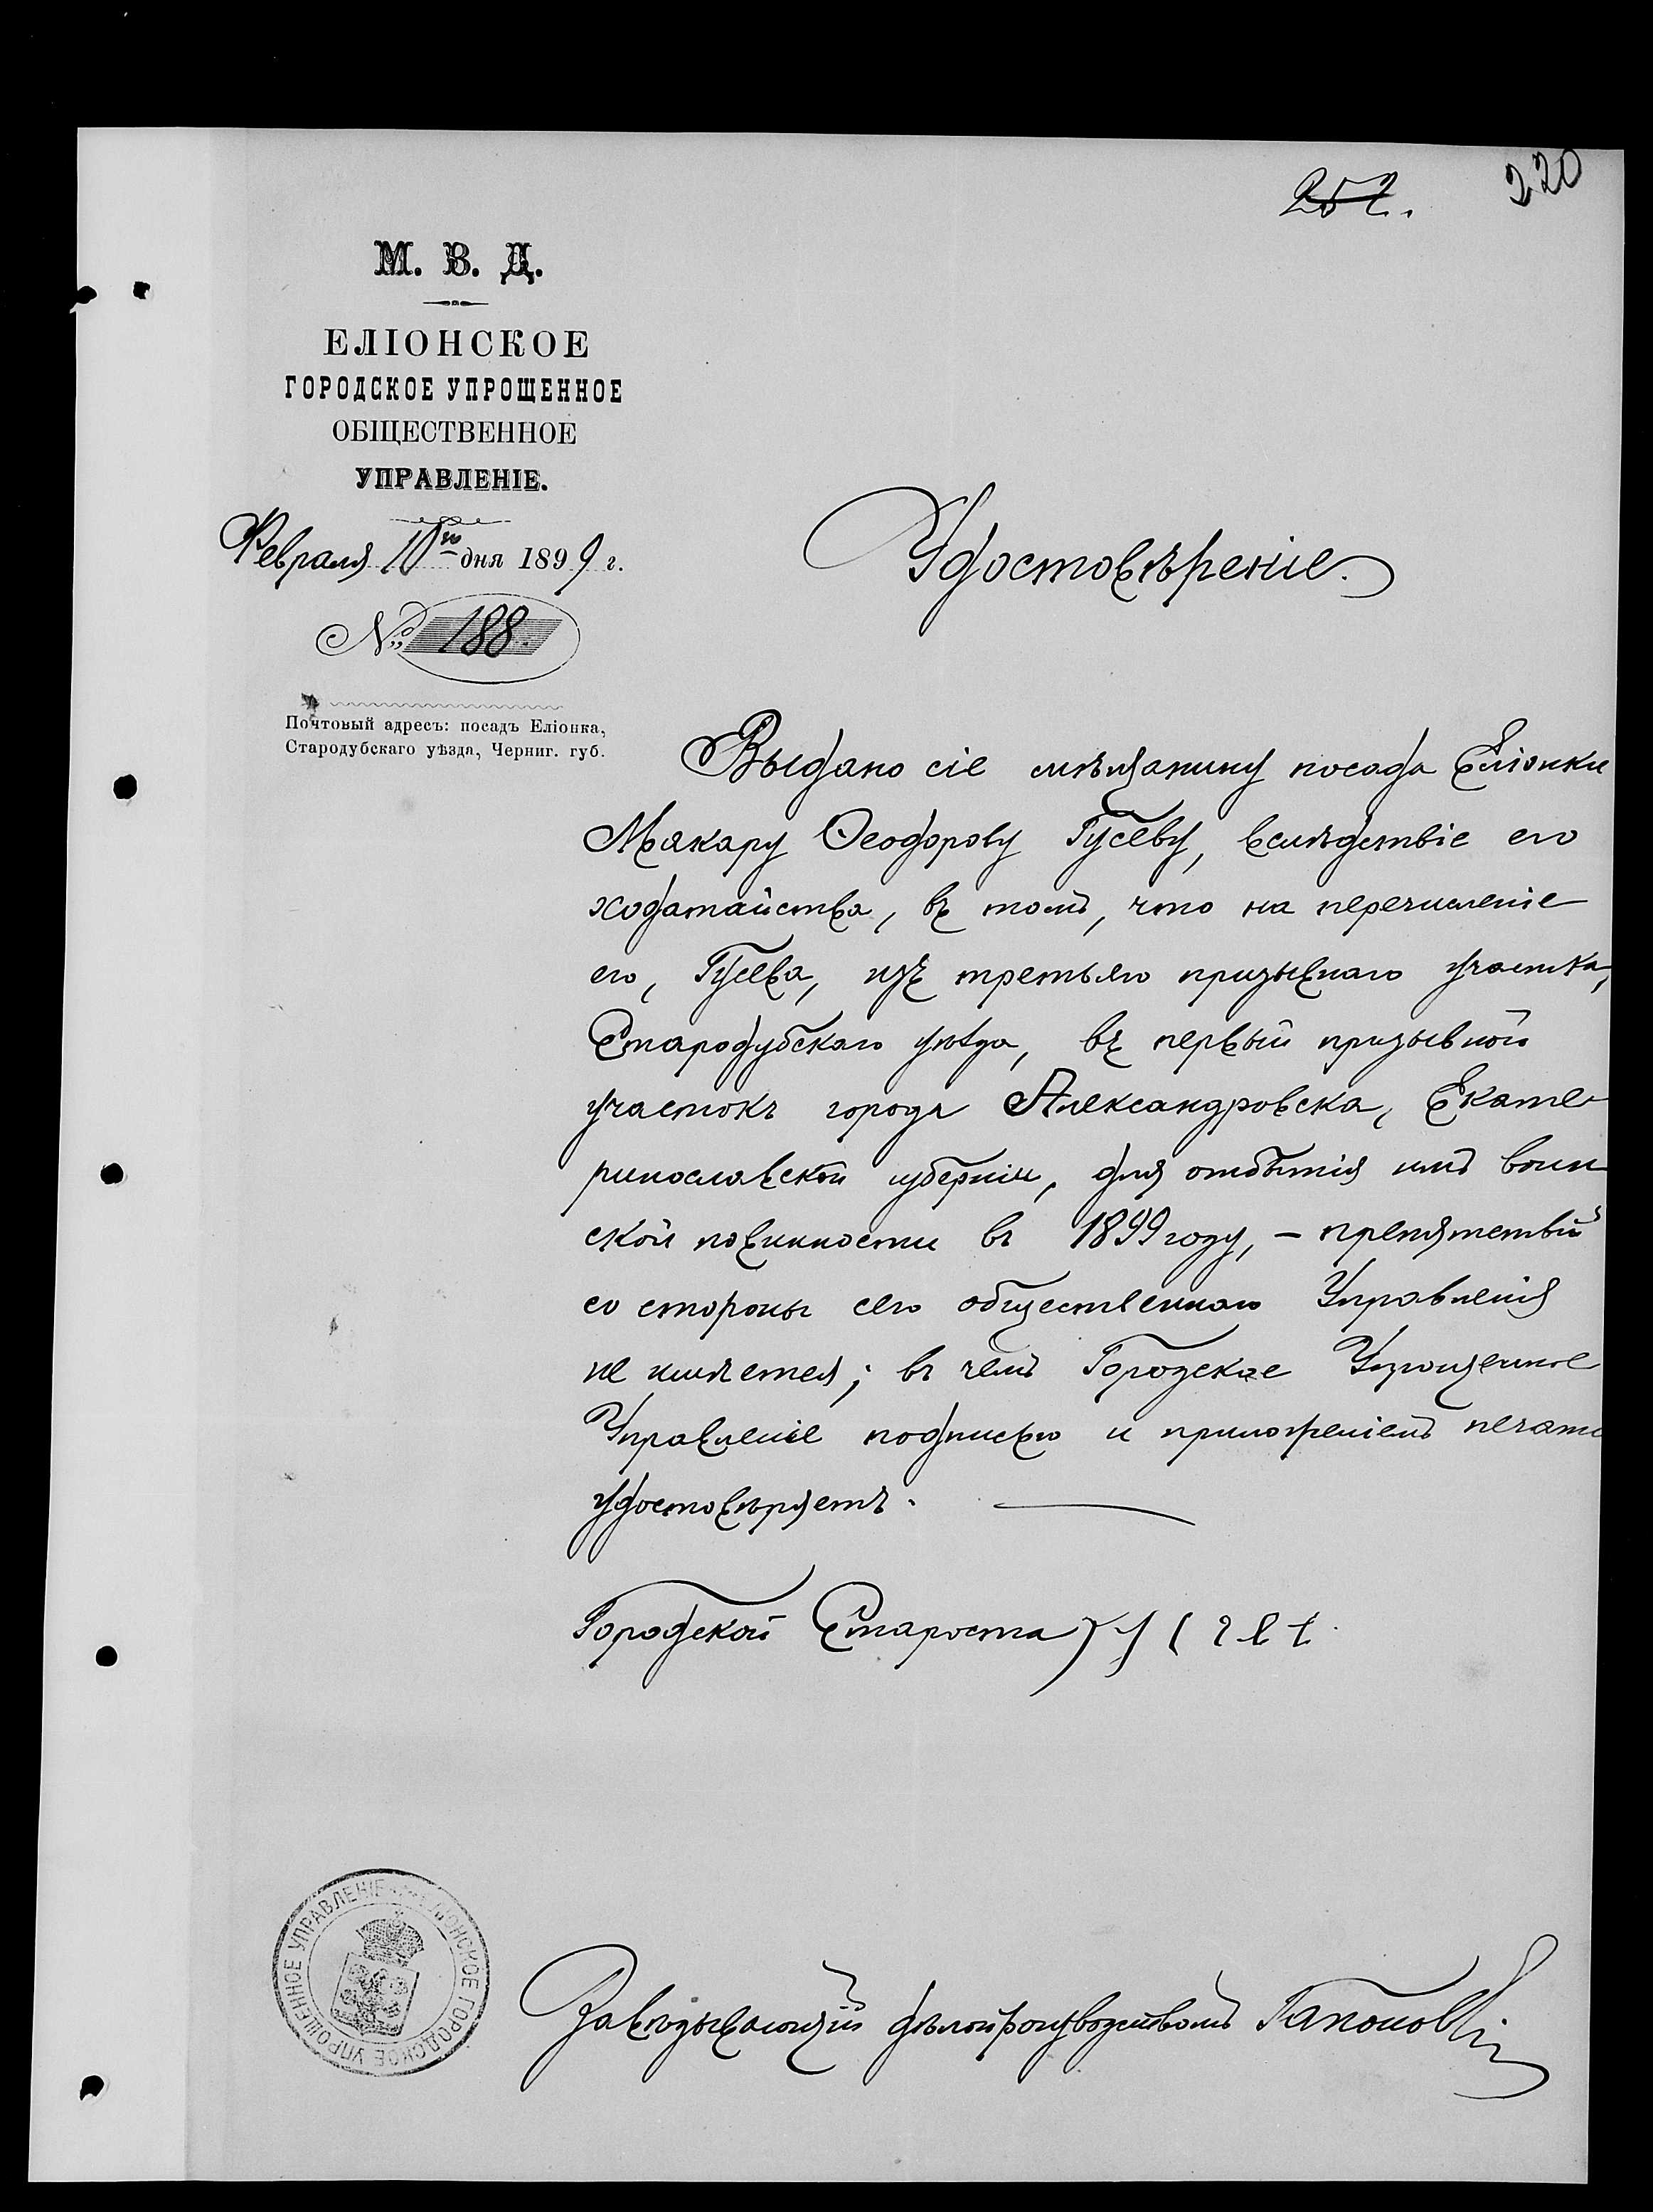 252.
220
М. В. Д.
ЕЛІОНСКОЕ
ГОРОДСКОЕ УПРОЩЕННОЕ
ОБЩЕСТВЕННОЕ
УПРАВЛЕНІЕ.
Февраля 10го дня 1899 г.
№ 188.
Почтовый адресъ: посадъ Еліонка,
Стародубскаго уѣзда, Черниг. губ.
Удостовѣреніе.
Выдано сіе мѣщанину посада Еліонки
Макару Ѳеодорову Гусеву, вслѣдствіе его
ходатайства, въ томъ, что на перечисленіе
его, Гусева, изъ третьяго призывнаго участка,
Стародубскаго уѣзда, въ первый призывной
участокъ города Александровска, Екате
ринославской губерніи, для отбытія имъ воин
ской повинности въ 1899 году, – препятствій
со стороны сего общественнаго Управленія
не имѣется; въ чемъ Городское Упрощенное
Управленіе подписью и приложеніемъ печати
удостовѣряетъ.
Городской Староста
ЕЛІОНСКОЕ ГОРОДСКОЕ УПРОЩЕННОЕ УПРАВЛЕНІЕ
Завѣдывающій дѣлопроизводствомъ Гапонов